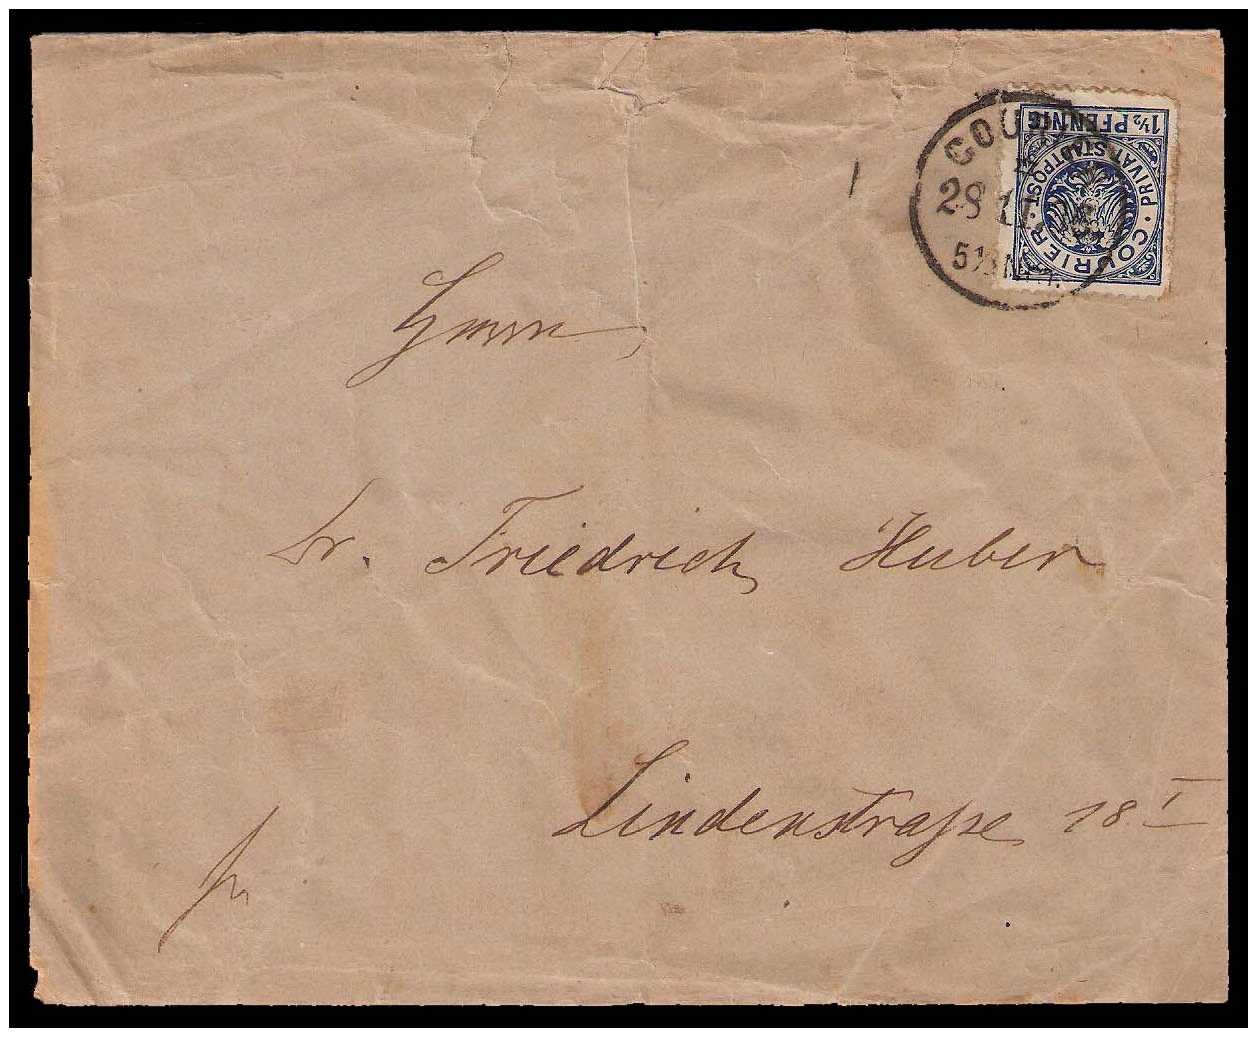 1½ PFENNIG
PRIVAT-STADTPOST
· COURIER ·
28 11
Herrn
Dr. Friedrich Huber
Lindenstraße 18 I